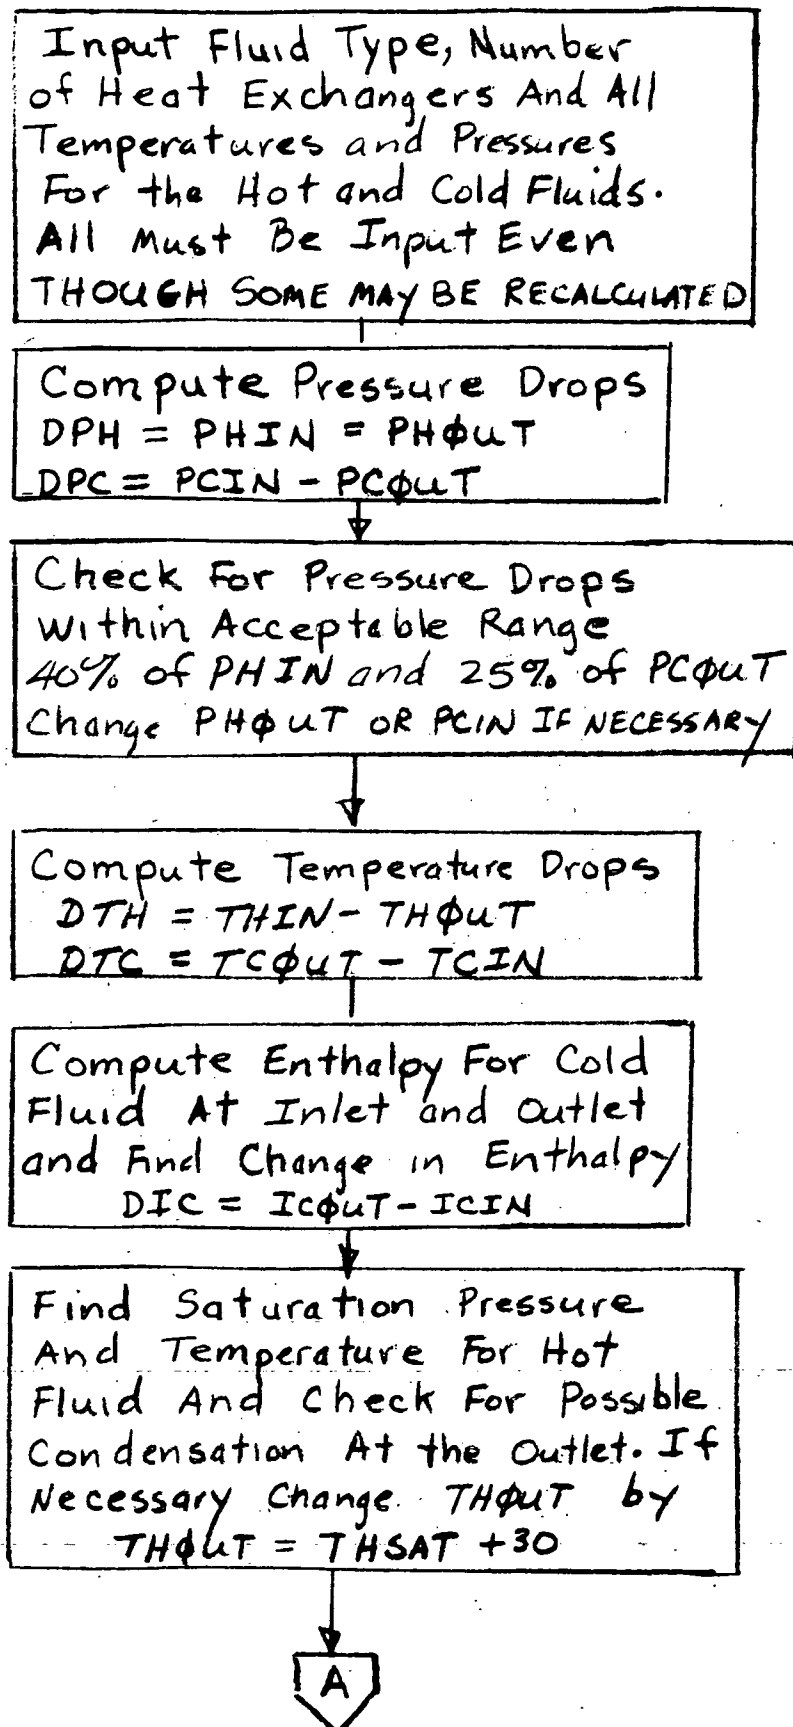 Input Fluid Type, Number
of Heat Exchangers And All
Temperatures and Pressures
For the Hot and Cold Fluids.
All Must Be Input Even
THOUGH SOME MAY BE RECALCULATED
Compute Pressure Drops
DPH = PHIN = PHϕUT
DPC = PCIN - PCϕUT
Check For Pressure Drops
Within Acceptable Range
40% of PHIN and 25% of PCϕUT
Change PHϕUT OR PCIN IF NECESSARY
Compute Temperature Drops
DTH = THIN - THϕUT
DTC = TCϕUT - TCIN
Compute Enthalpy For Cold
Fluid At Inlet and Outlet
and Find Change in Enthalpy
DIC = ICϕUT - ICIN
Find Saturation Pressure
And Temperature For Hot
Fluid And Check For Possible
Condensation At the Outlet. If
Necessary Change THϕUT by
THϕUT = THSAT +30
A